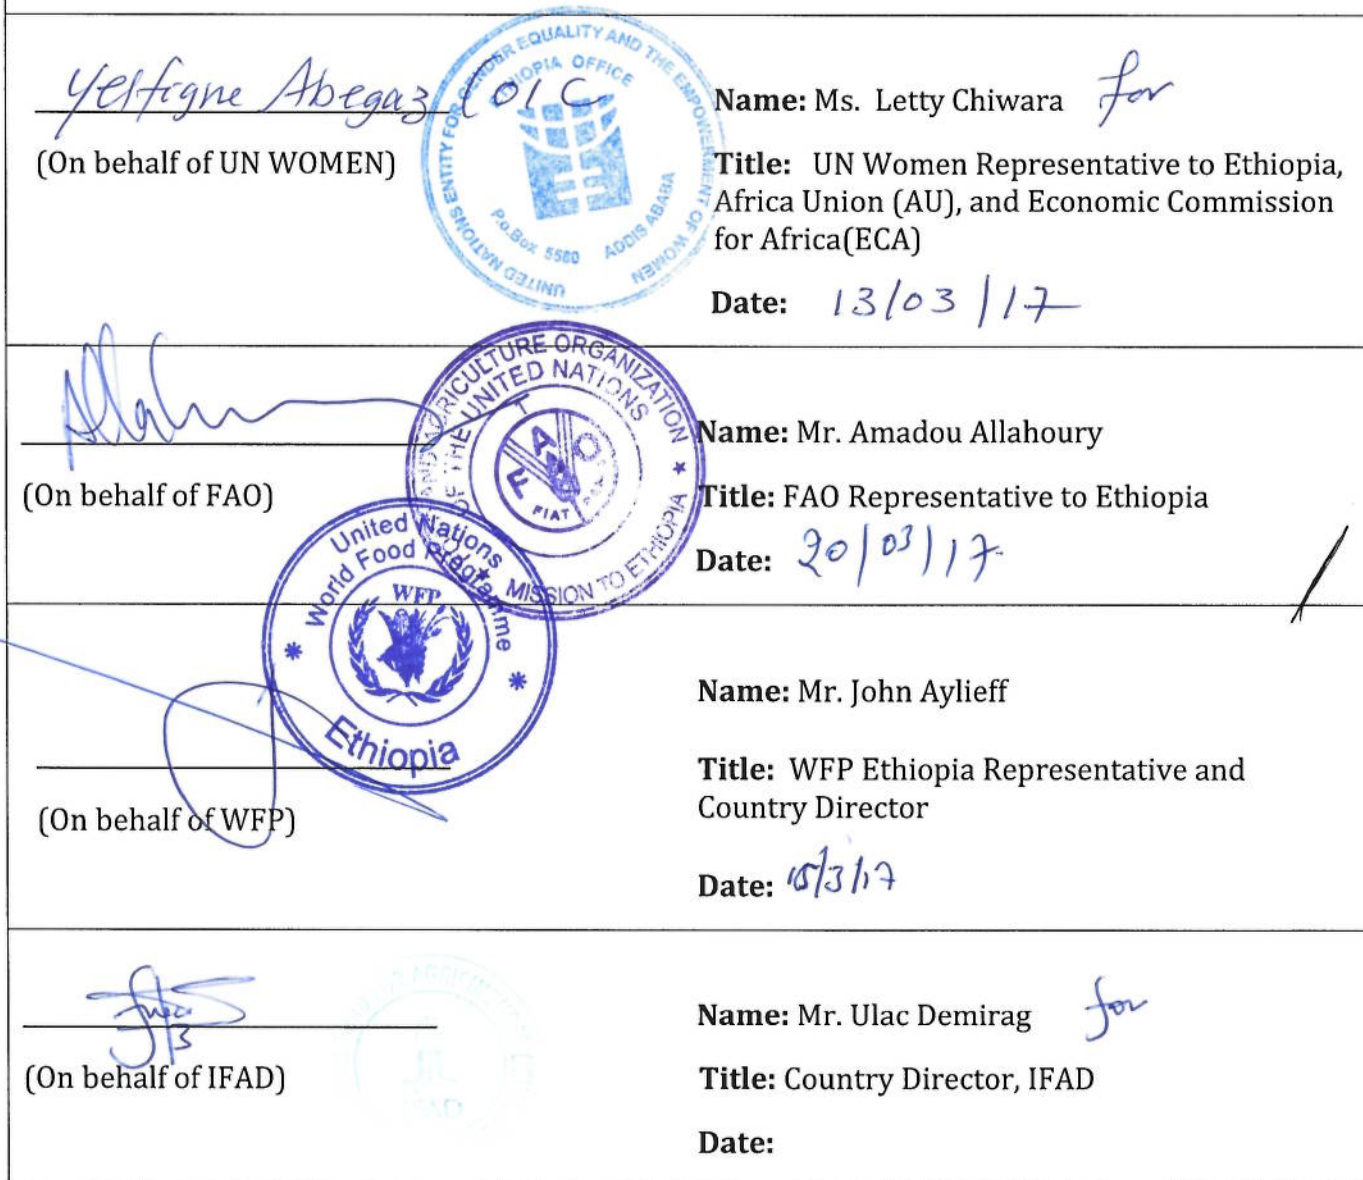 Yelfigne Abegaz (OIC
(On behalf of UN WOMEN)
UNITED NATIONS ENTITY FOR GENDER EQUALITY AND THE EMPOWERMENT OF WOMEN
ETHIOPIA OFFICE
P.o.Box 5580 ADDIS ABABA
Name: Ms. Letty Chiwara for
Title: UN Women Representative to Ethiopia,
Africa Union (AU), and Economic Commission
for Africa(ECA)
Date: 13/03/17
(On behalf of FAO)
AND AGRICULTURE ORGANIZATION
OF THE UNITED NATIONS
FAO
FIAT
MISSION TO ETHIOPIA
Name: Mr. Amadou Allahoury
Title: FAO Representative to Ethiopia
Date: 20/03/17
United Nations
World Food Programme
WFP
Ethiopia
(On behalf of WFP)
Name: Mr. John Aylieff
Title: WFP Ethiopia Representative and
Country Director
Date: 15/3/17
(On behalf of IFAD)
IFAD
Name: Mr. Ulac Demirag for
Title: Country Director, IFAD
Date: